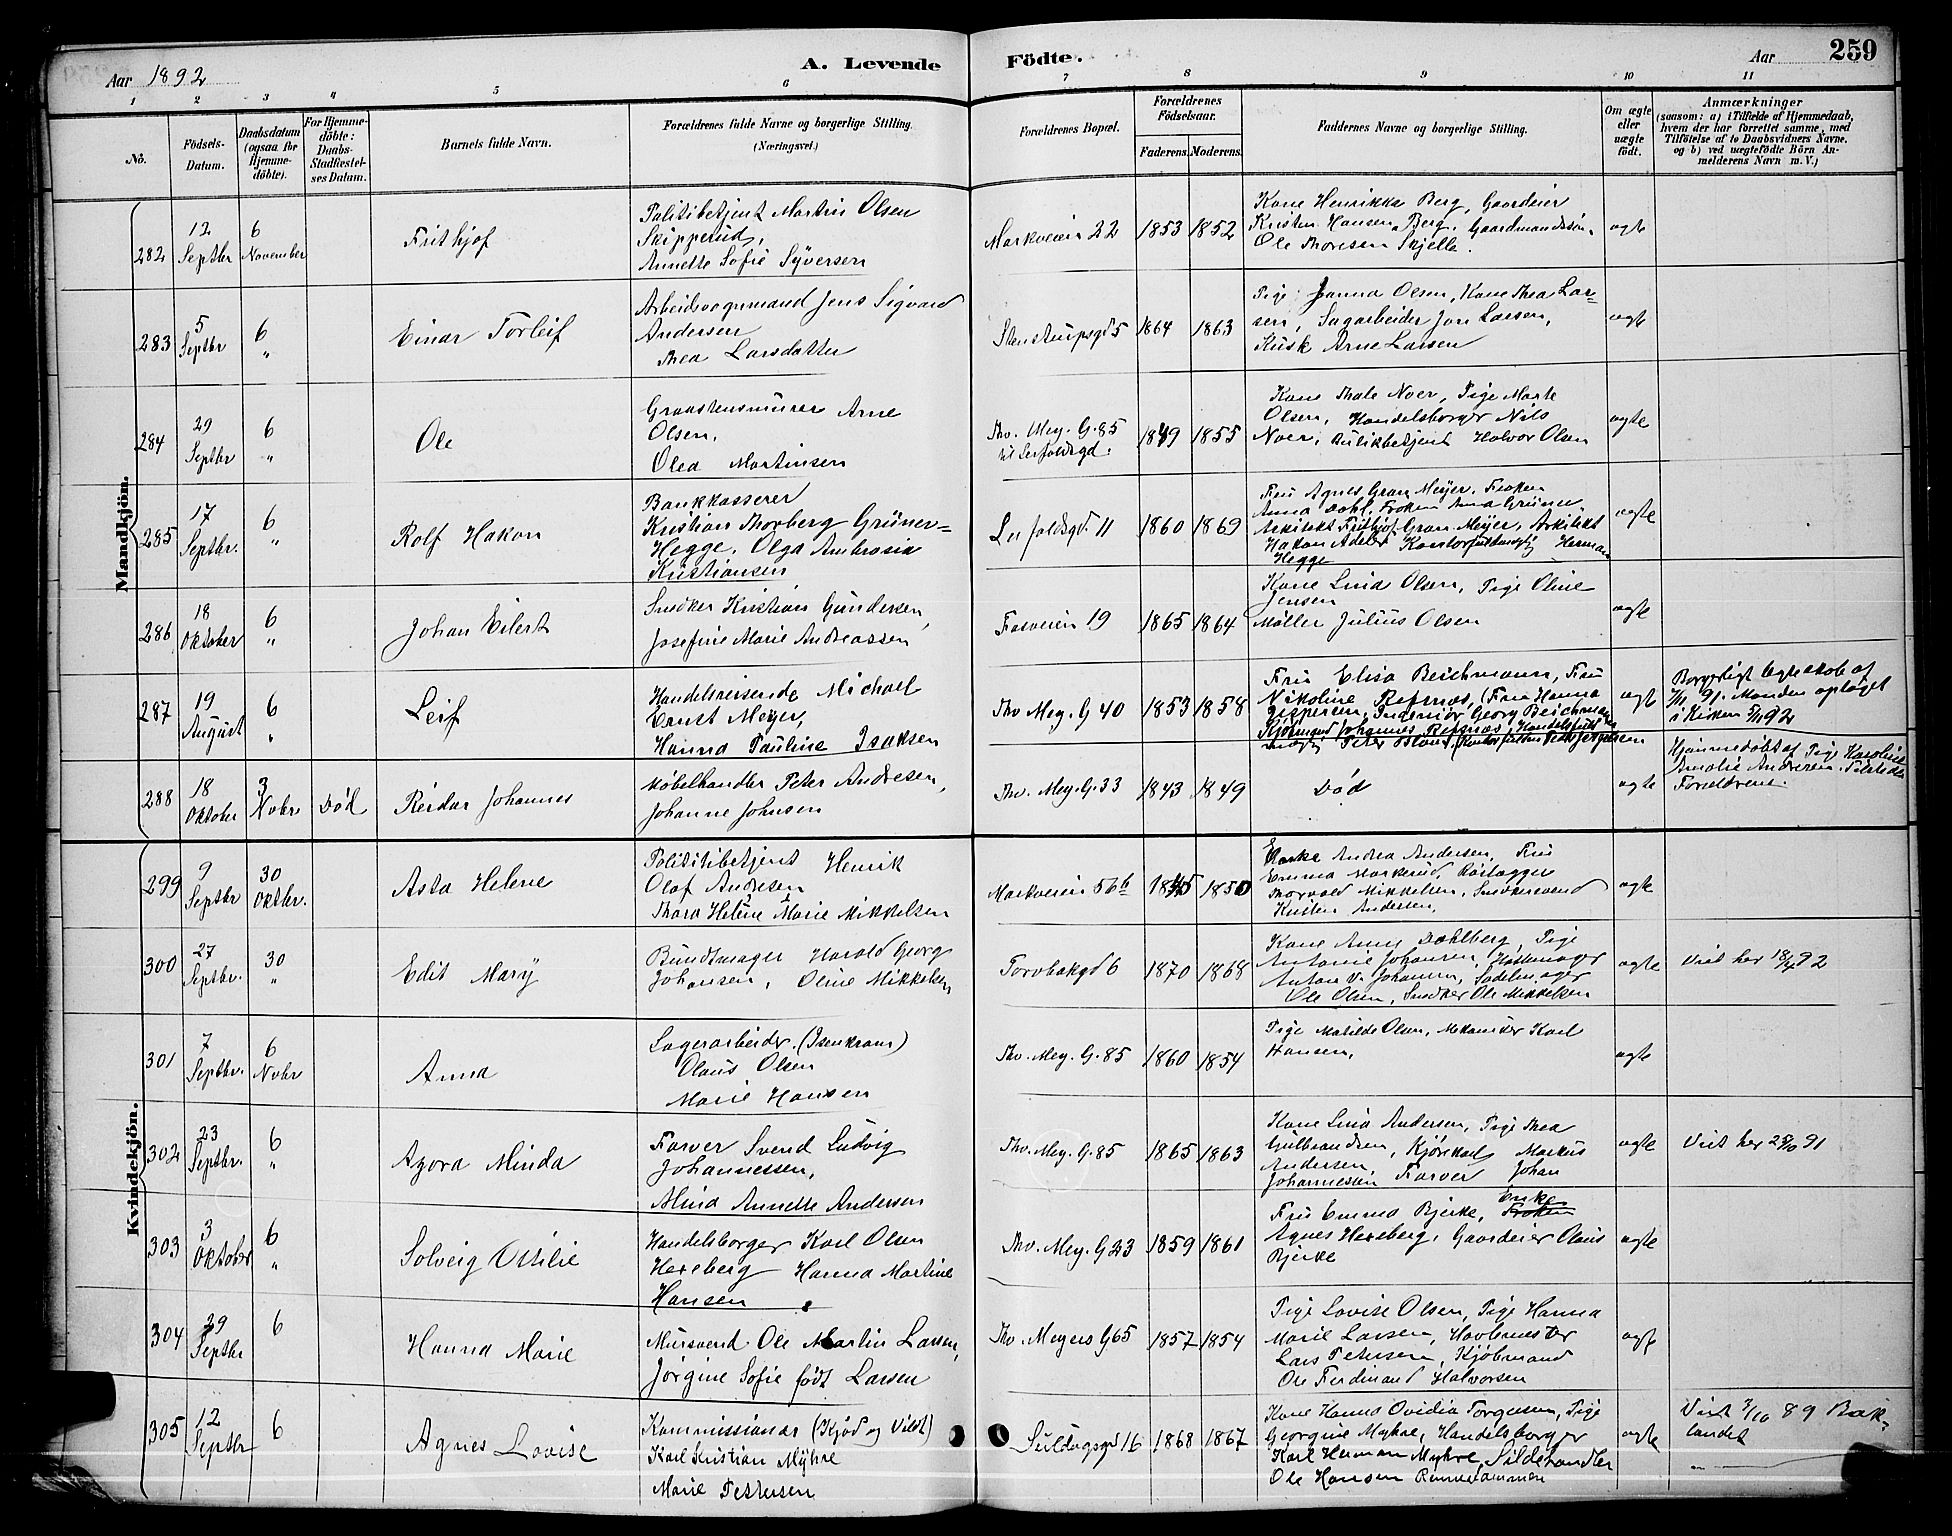 Aar 1892
A. Levende Födte.
Aar
259
1 2 3 4 5 6 7 8 9 10 11
No.
Födsels-Datum.
Daabsdatum (ogsaa for Hjemme-döbte).
For Hjemme-döbte: Daabs-Stadfæstel-ses Datum.
Barnets fulde Navn.
Forældrenes fulde Navne og borgerlige Stilling. (Næringsvei.)
Forældrenes Bopæl.
Forældrenes Födselsaar.
Faderens. Moderens.
Faddernes Navne og borgerlige Stilling.
Om ægte eller uægte födt.
Anmærkninger
(saasom: a) i Tilfælde af Hjemmedaab, hvem der har forrettet samme, med Tilföielse af to Daabsvidners Navne, og b) ved uægtefödte Börn An-melderens Navn m. V.)
Mandkjön.
282 12 Septbr 6 November
Frithjof
Politibetjent Martin Olsen
Skipperud,
Annette Sofie Syversen
Markveien 22 1853 1852
Kone Henrikke Berg, Gaardeier
Kristen Hansen Berg, Gaardmandssøn
Ole Thoresen Skjelle.
ægte
283 5 Septbr 6 "
Einar Torleif
Arbeidsvognmand Jens Sigvard
Andersen
Thea Larsdatter
Stenstrupsgd 5 1864 1863
Pige Janna Olsen, Kone Thea Lar-
sen, Sagarbeider Jon Larsen,
Kusk Arne Larsen
ægte
284 29 Septbr 6 "
Ole
Graastensmurer Arne
Olsen,
Olea Martinsen
Thv. Mey. G. 85 1849 1855
Kone Thale Noer, Pige Marte
Olsen, Handelsborger Nils
Noer, Halvor Olsen
ægte
285 17 Septbr. 6 "
Rolf Hakon
Bankkasserer
Kristian Thorberg Grüner-
Hegge, Olga Ambrosia
Kristiansen
11 1860 1869
Fru Agnes Gran Meyer, Frøken
Anna Dahl, Frøken Anna Grüner
Arkitekt Frithjof Gran Meyer, Arkitekt
Hakon Herman
Hegge
ægte
286 18 Oktober 6 "
Johan Eilert
Snedker Kristian Gundersen,
Josefine Marie Andreassen
Fosveien 19 1865 1864
Kone Lina Olsen, Pige Oline
Jensen
Møller Julius Olsen
ægte
287 19 August 6 "
Leif
Handelsreisende Michael
Ernst Meyer,
Hanna Pauline Isaksen
Thv Mey. G 40 1853 1858
Fru Elisa Beichmann, Fru
Nikoline Refsnæs, Fru Hanna
Jespersen, Ingeniør Georg Beichmann
Kjøbmand Johannes Refsnæs,
ægte
Borgerligt ægteskab af
91. Manden optaget
i Kirken 92
288 18 Oktober 3 Novbr Død
Reidar Johannes
Møbelhandler Peter Andresen,
Johanne Johnsen
Thv. Mey. G. 33 1843 1849
Død
ægte
Hjemmedøbt af Pige Karoline
Amalie Andresen. Tilstede
Forældrene.
Kvindekjön.
299 9 Septbr 30 Oktbr.
Asta Helene
Politibetjent Henrik
Olaf Andresen
Thora Helene Marie Mikkelsen
Markveien 56 b 1845 1850
Enke Andrea Andersen, Fru
Emma Markerud,
Thorvald Mikkelsen, Snedkersvend
Kristen Andersen.
ægte
300 27 Septbr. 30 "
Edit Mary
Bundtmager Harald Georg
Johansen, Oline Mikkelsen
Torvbakgd 6 1870 1868
Kone Anny Dahlberg, Pige
Antonie Johansen, Hattemager
Anton V. Johansen, Sadelmager
Ole Olsen, Snedker Ole Mikkelsen
ægte
Viet her 18/4 92
301 7 Septbr. 6 Novbr
Anna
Lagerarbeider. (Isenkram)
Olaus Olsen
Marie Hansen
Thv. Mey. G. 85 1860 1854
Pige Matilde Olsen, Mekaniker Karl
Hansen,
ægte
302 23 Septbr. 6 "
Agora Minda
Farver Svend Ludvig
Johannessen,
Alina Annette Andersen
Thv. Mey. G. 85 1865 1863
Kone Lina Andersen, Pige Thea
Gulbrandsen, Kjørekarl Markus
Andersen, Farver Johan
Johannessen
ægte
Viet her 91
303 3 Oktober 6 "
Solveig Ottilie
Handelsborger Karl Olsen
Hexeberg Hanna Martine
Hansen
Thv. Mey. G 23 1859 1861
Fru Emma Bjerke, Enke
Agnes Hexeberg, Gaardeier Olaus
Bjerke
ægte
304 29 Septbr 6
Hanna Marie
Mursvend Ole Martin Larsen,
Jørgine Sofie født Larsen
Thv. Meyers G 65 1857 1854
Pige Lovise Olsen, Pige Hanna
Marie Larsen,
Lars Petersen, Kjøbmand
Ole Ferdinand Halvorsen
ægte
305 12 Septbr 6
Agnes Lovise
Kommissionær (Kjød og Vildt)
Karl Kristian Myhre
Marie Pettersen
16 1868 1867
Kone Hanna Ovidia Torgersen, Pige
Georgine Myhre, Handelsborger
Karl Herman Myhre, Sildehandler
Ole Hansen
ægte
Viet 7/10 89 Bak-
landet